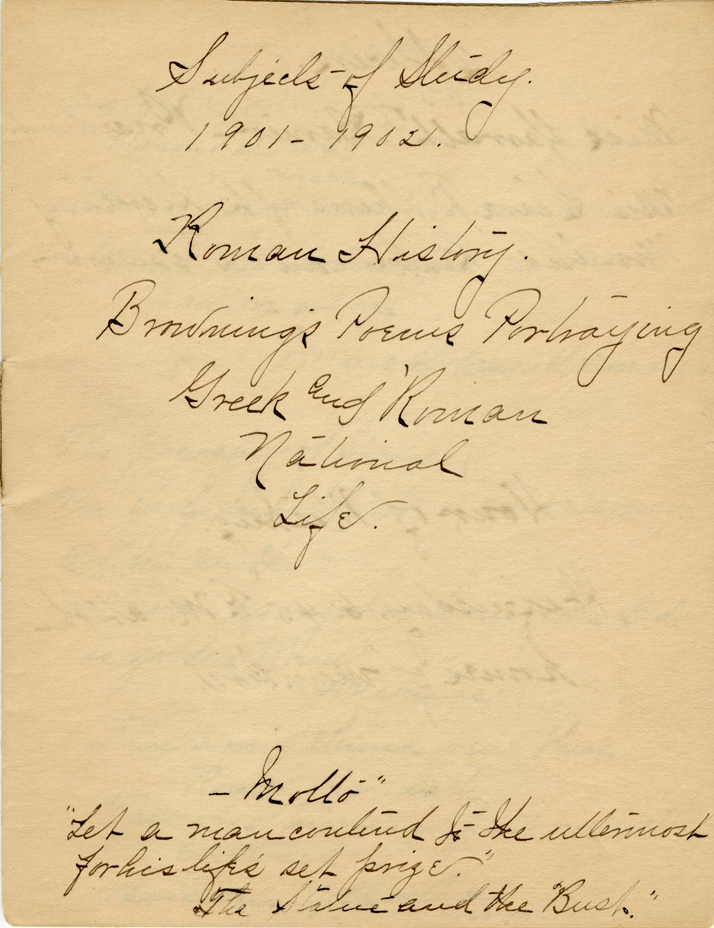 Subjects of Study.
1901-1902.
Roman History.
Browning's Poems Portraying
Greek and Roman
National
Life.
- Motto"
"Let a man contend to the uttermost
for his life's set prize."
The Statue and the "Bust."